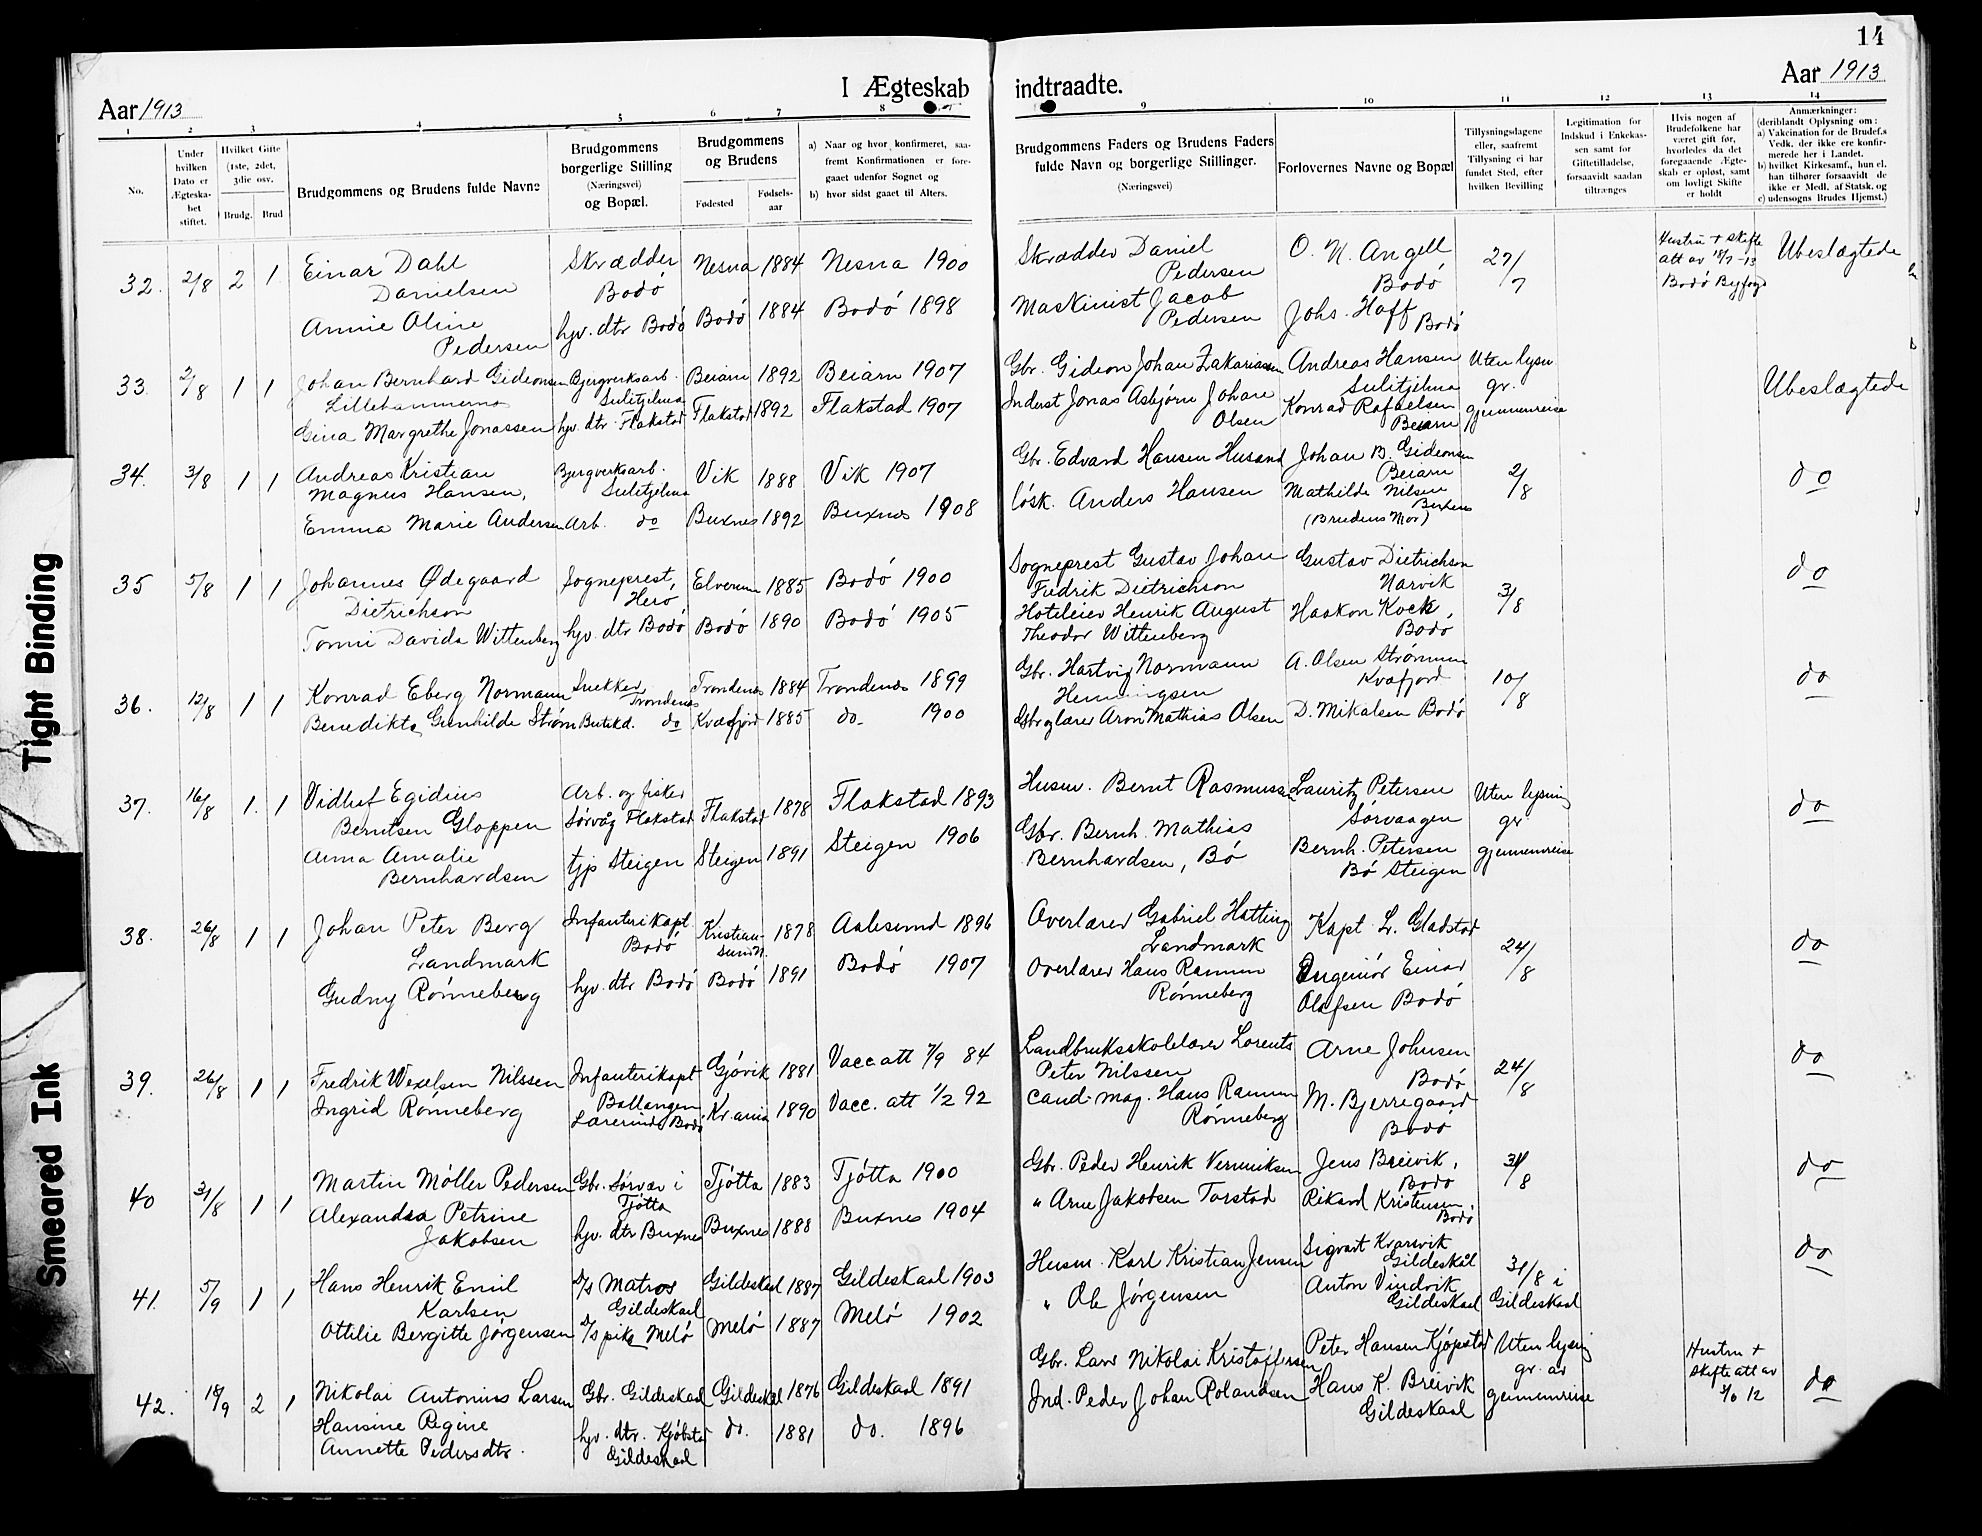 14
Aar 1913
I Ægteskab indtraadte.
Aar 1913
1 2 3 4 5 6 7 8 9 10 11 12 13 14
No.
Under hvilken Dato er Ægteskabet stiftet.
Hvilket Gifte (1ste, 2det, 3die osv.
Brudg. Brud
Brudgommens og Brudens fulde Navne
Brudgommens borgerlige Stilling (Næringsvei) og Bopæl.
Brudgommens og Brudens
Fødested Fødsels-aar
a) Naar og hvor konfirmeret, saafremt Konfirmationen er foregaaet udenfor Sognet og
b) hvor sidst gaaet til Alters.
Brudgommens Faders og Brudens Faders fulde Navn og borgerlige Stillinger.
(Næringsvei)
Forlovernes Navne og Bopæl
Tillysningsdagene eller, saafremt Tillysning ei har fundet Sted, efter hvilken Bevilling
Legitimation for Indskud i Enkekassen samt for Giftetilladelse, forsaavidt saadan tiltrænges
Hvis nogen af Brudefolkene har været gift før, hvorledes da det foregaaende Ægteskab er opløst, samt om lovligt Skifte er holdt
Anmærkninger:
(deriblandt Oplysning om:
a) Vakcination for de Brudef.s Vedk. der ikke ere konfirmerede her i Landet.
b) hvilket Kirkesamf., hun el. han tilhører forsaavidt de ikke er Medl. af Statsk. og
c) udensogns Brudes Hjemst.)
32. 2/8 2 1. Einar Dahl Danielsen Skrædder Bodó Nesna 1884 Nesna 1900 Skrædder Daniel Pedersen O. N. Angell Bodó 27/7 Hustru + Skifte att av 18/7-13 Bodó Byfogd Ubeslægtede
Annie Oline Pedersen hjv. dtr Bodó Bodó 1884 Bodó 1898 Maskinist Jacob Pedersen Johs. Hoff Bodó
33. 2/8 1 1 Johan Bernhard Gideonsen Lillehammernes Bjergverksarb. Sulitjelma Beiarn 1892 Beiarn 1907 Gbr. Gideon Johan Zakariassen Andreas Hansen Sulitjelma Uten lysn gr. gjennemreise Ubeslægtede
Gina Margrethe Jonassen hjv. dtr Flakstad Flakstad 1892 Flakstad 1907 Inderst Jonas Asbjørn Johan Olsen Konrad Rafaelsen Beiarn
34. 3/8 1 1 Andreas Kristian Magnus Hansen, Bjergverksarb. Sulitjelma Vik 1888 Vik 1907 Gbr. Edvard Hansen Husand Johan B. Gideonsen Beiarn 2/8 do
Emma Marie Andersen Arb. do Buxnes 1892 Buxnes 1908 lósk. Anders Hansen Mathilde Nilsen Buxnes (Brudens Mor)
35 5/8 1 1 Johannes Ødegaard Dietrichson Sogneprest, Heró Elverum 1885 Bodó 1900 Sogneprest Gustav Johan Fredrik Dietrichson Gustav Dietrichson Narvik 3/8 do
Tomi Davida Wittenberg hjv. dtr Bodó Bodó 1890 Bodó 1905 Hoteleier Henrik August Theodor Wittenberg Haakon Kock, Bodó
36. 12/8 1 1 Konrad Eberg Normann Snekker Trondenes Trondenes 1884 Trondenes 1899 Gbr. Hartvig Normann Henningsen A. Olsen Strømmen Kvæfjord 10/8 do
Benedikte Gunhilde Strøm Butikd. do Kvæfjord 1885 do. 1900 Gbr oglærer Aron Mathias Olsen D. Mikalsen Bodó
37. 16/8 1. 1 Vidluf Egidius Berntsen Gloppen Arb. og fisker Sørvåg Flakstad Flakstad 1878 Flakstad 1893 Husm. Bernt Rasmussen Lauritz Petersen Sørvaagen Uten lysning gr gjennemreise do
Anna Amalie Bernhardsen tjp Steigen Steigen 1891 Steigen 1906 Gbr. Bernh. Mathias Bernhardsen, Bó Bernh. Petersen Bó Steigen
38. 26/8 1 1 Johan Peter Berg Landmark Infanterikapt Bodó Kristiansund N. 1878 Aalesund 1896 Overlærer Gabriel Hatting Landmark Kapt. L. Gladstad 24/8 do
Gudny Rónneberg hjv. dtr Bodó Bodó 1891 Bodó 1907 Overlærer Hans Ramm Rónneberg Ingeniór Einar Olafsen Bodó
39. 26/8 1 1 Fredrik Wexelsen Nilssen Infanterikapt Ballangen Gjóvik 1881 Vacc att 7/9 84 Landbruksskolelærer Lorents Peter Nilssen Arne Johnsen Bodó 24/8 do
Ingrid Rónneberg Lærerinde Bodó Kr.ania 1890 Vacc. att 1/2 92 cand. mag. Hans Ramm Rónneberg M. Bjerregaard Bodó
40 31/8 1 1 Martin Móller Pedersen Gbr. Sórvær i Tjótta Tjótta 1883 Tjótta 1900 Gbr. Peder Henrik Vernniksen Jens Breivik, Bodó 31/8 do
Alexandra Petrine Jakobsen hjv. dtr Buxnes Buxnes 1888 Buxnes 1904 " Arne Jakobsen Torstad Rikard Kristensen, Bodó
41. 5/9 1 1 Hans Henrik Emil Karlsen D/s Matros Gildeskaal Gildeskaal 1887 Gildeskaal 1903 Husm. Karl Kristian Jensen Sigvart Kvarsvik Gildeskål 31/8 i Gildeskaal do
Ottilie Bergitte Jórgensen D/s pike Meló Meló 1887 Meló 1902 " Ole Jørgensen Anton Vindvik Gildeskaal
42. 18/9 2 1 Nikolai Antonius Larsen Gbr. Gildeskaal Gildeskål 1876 Gildeskaal 1891 Gbr. Lars Nikolai Kristoffersen Peter Hansen Kjópstad Uten lysnig gr. av gjennemreise Hustru + Skifte att av 12 do
Hansine Regine Annette Pedersdtr. hjv. dtr. Kjóbstad Gildeskaal do. 1881 do. 1896 Ind. Peder Johan Rolandsen Hans K. Breivik Gildeskaal
Tight Binding
Smeared Ink